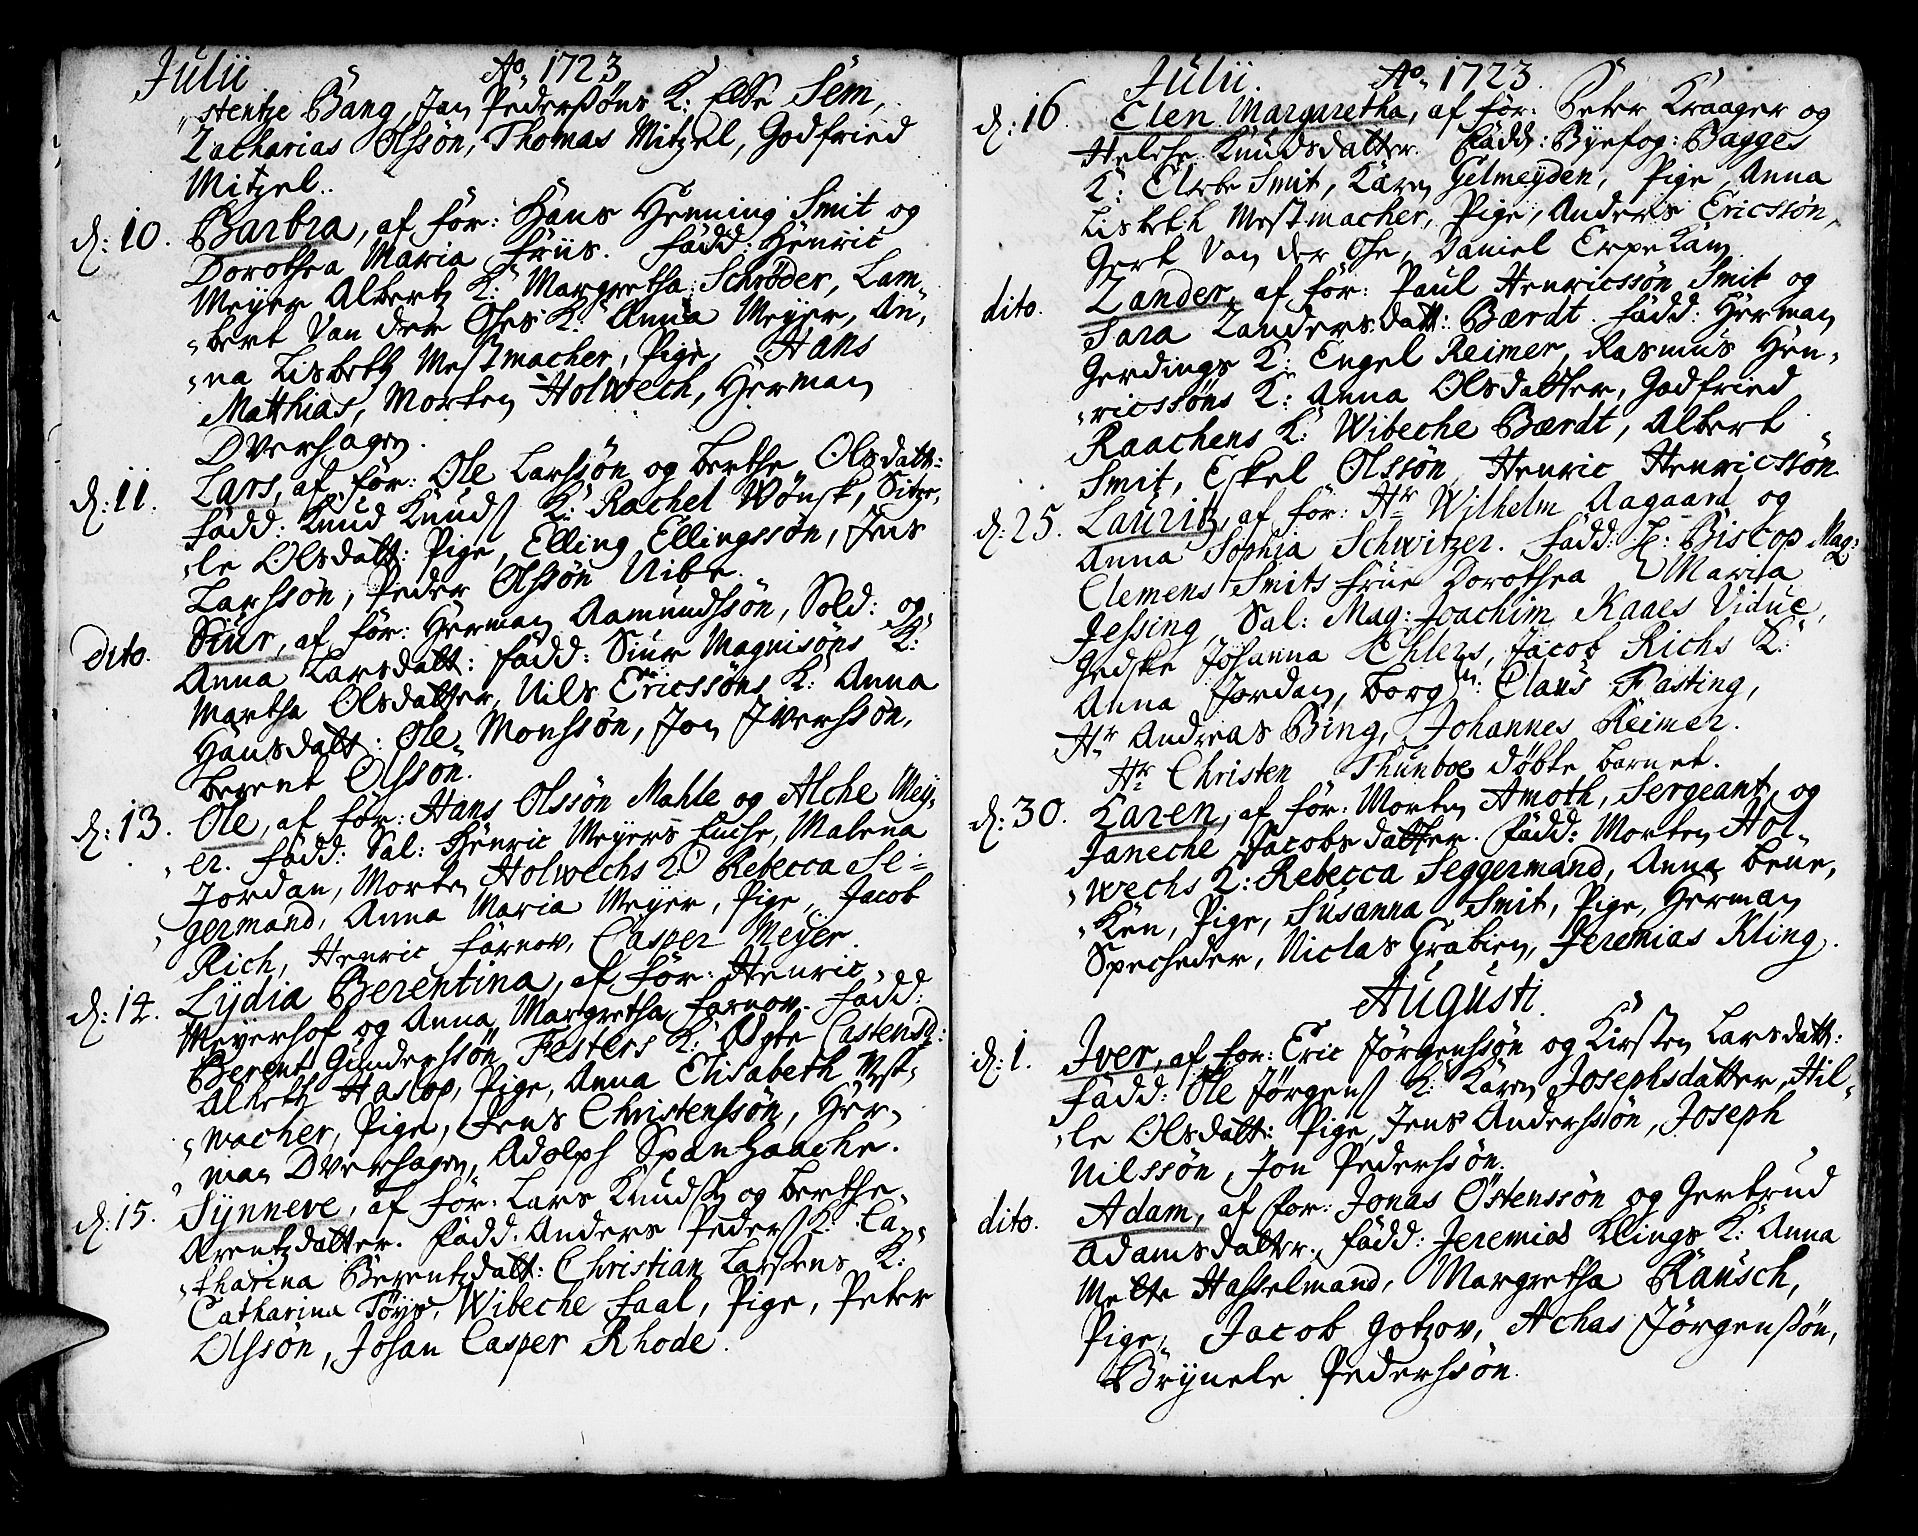 Julii Ao 1723
"stentze Bang, Jan Pederssøns K: Else Sem,
Zacharias Olssøn, Thomas Mitzel, Godfried
Mitzel.
d: 10. Barbra, af for: Hans Henning Smit og
Dorothea Maria Friis. fadd: Henric
Meyer Albertz K: Margretha Schrøder, Lam-
"bert Van der Ohes K: Anna Meyer, An-
"na Lisbeth Mestmacher, Pige, Hans
Matthias, Morten Holwech, Herman
Dverhagen.
d: 11. Lars, af for: Ole Larssøn og Berthe Olsdatt:
fadd: Knud Knuds K: Rachel Wønsk, Sitze-
"le Olsdatt: Pige, Elling Ellingssøn, Jens
Larssøn, Peder Olssøn Vibe.
dito. Siur, af for: Herman Aamundssøn, Sold: og
Anna Larsdatt: fadd: Siur Magnisøns K:
Martha Olsdatter, Nils Ericssøns K: Anna
Hansdatt: Ole Monssøn, Jon Iverssøn,
Berent Olsson.
d: 13. Ole, af for: Hans Olssøn Mahle og Alche Mey-
"er. fadd: Sal: Henric Meyers Enche, Malena
Jordan, Morten Holwechs K: Rebecca Se-
"germand, Anna Maria Meyer, Pige, Jacob
Rich, Henric Farnov, Casper Meyer.
d: 14. Lydia Berentina, af for: Henric
Meyerhof og Anna Margretha Farnov. fadd:
Berent Gunderssøn Festers K: Aegte Castensd:
Alhetz Haslop, Pige, Anna Elisabeth Mest-
"macher, Pige, Jens Christenssøn, Her-
"man Dverhagen, Adolph Spanhaache.
d: 15. Synneve, af for: Lars Knuds og Berthe
Arentzdatter. fadd: Anders Peders K: Ca-
"tharina Berentzdatt: Christian Larsens K:
Catharina Tøys, Wibeche Faal, Pige, Peter
Olssøn, Johan Casper Rhode.
Julii. Ao 1723.
d: 16. Elen Margaretha, af for: Peter Kraager og
Helche Knudsdatter. fadd: Byefog: Bagges
K: Elsebe Smit, Karen Gelmeyden, Pige, Anna
Lisbeth Mestmacher, Pige, Anders Ericssøn,
Gert Van der Ohe, Daniel Erpekam
dito. Zander, af for: Paul Henricssøn Smit og
Sara Zandersdatt: Bærdt. fadd: Herman
Gerdings K: Engel Reimer, Rasmus Hen-
"ricssøns K: Anna Olsdatter, Godfried
Raachens K: Wibeche Bærdt, Albert
Smit, Eskel Olssøn, Henric Henricssøn
d: 25. Lauritz, af for: Hr Wilhelm Aagaard og
Anna Sophia Schwitzer. fadd: H: Biscop Mag:
Clemens Smits frue Dorothea Maria
Jessing, Sal: Mag: Joachim Kaaes Vidue,
Gedske Johanna Ehlers, Jacob Richs K:
Anna Jordan, Borgm: Claus Fasting,
Hr Andreas Bing, Johannes Reimer.
Hr Christen Thunboe døbte barnet.
d: 30. Karen, af for: Morten Amoth, Sergeant, og
Janeche Jacobsdatter. fadd: Morten Hol-
"wechs K: Rebecca Seggermand, Anna Bene-
"ken, Pige, Susanna Smit, Pige, Herman
Specheder, Niclas Grabien, Jeremias Kling.
Augusti.
d: 1. Iver, af for: Eric Jørgenssøn og Kirsten Larsdatt:
fadd: Ole Jørgens K: Karen Josephsdatter, Hil-
"le Olsdatt: Pige, Jens Anderssøn, Joseph
Nilssøn, Jon Pederssøn.
dito. Adam, af for: Jonas Østenssøn og Gertrud
Adamsdatter. fadd: Jeremias Klings K: Anna
Mette Hasselmand, Margretha Rausch,
Pige, Jacob Gotzov, Achas Jørgenssøn,
Brynele Pederssøn.